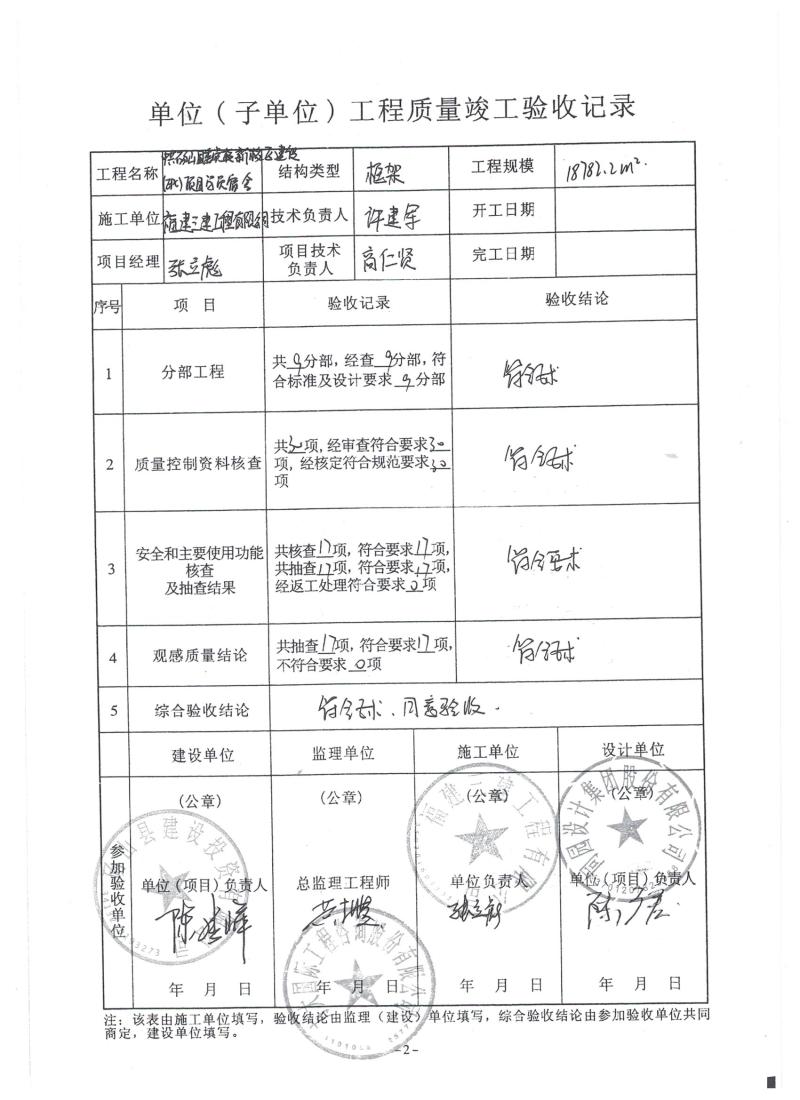 单位（子单位）工程质量竣工验收记录
工程名称
结构类型 框架 工程规模 18782.2m².
施工单位 技术负责人 许建军 开工日期
项目经理 张立彪 项目技术负责人 高仁贤 完工日期
序号 项 目 验收记录 验收结论
1 分部工程
共9分部，经查9分部，符
合标准及设计要求9分部
符合要求
2 质量控制资料核查
共30项，经审查符合要求30
项，经核定符合规范要求30
项
符合要求
3
安全和主要使用功能
核查
及抽查结果
共核查17项，符合要求17项，
共抽查17项，符合要求17项，
经返工处理符合要求0项
符合要求
4 观感质量结论
共抽查17项，符合要求17项，
不符合要求0项
符合要求
5 综合验收结论 符合要求、同意验收.
建设单位 监理单位 施工单位 设计单位
参加验收单位
（公章） （公章） （公章） （公章）
单位（项目）负责人 总监理工程师 单位负责人 单位（项目）负责人
年 月 日 年 月 日 年 月 日 年 月 日
注：该表由施工单位填写，验收结论由监理（建设）单位填写，综合验收结论由参加验收单位共同
商定，建设单位填写。
-2-